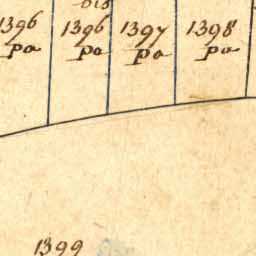 bis
1396 1396 1397 1398
pa pa pa pa
1399